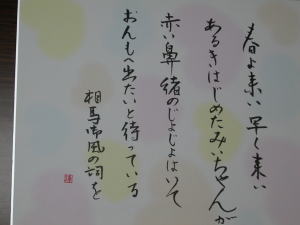 春よ来い 早く来い
あるきはじめたみいちゃんが
赤い鼻緒のじょじょはいて
おんもへ出たいと待っている
相馬御風の詞を